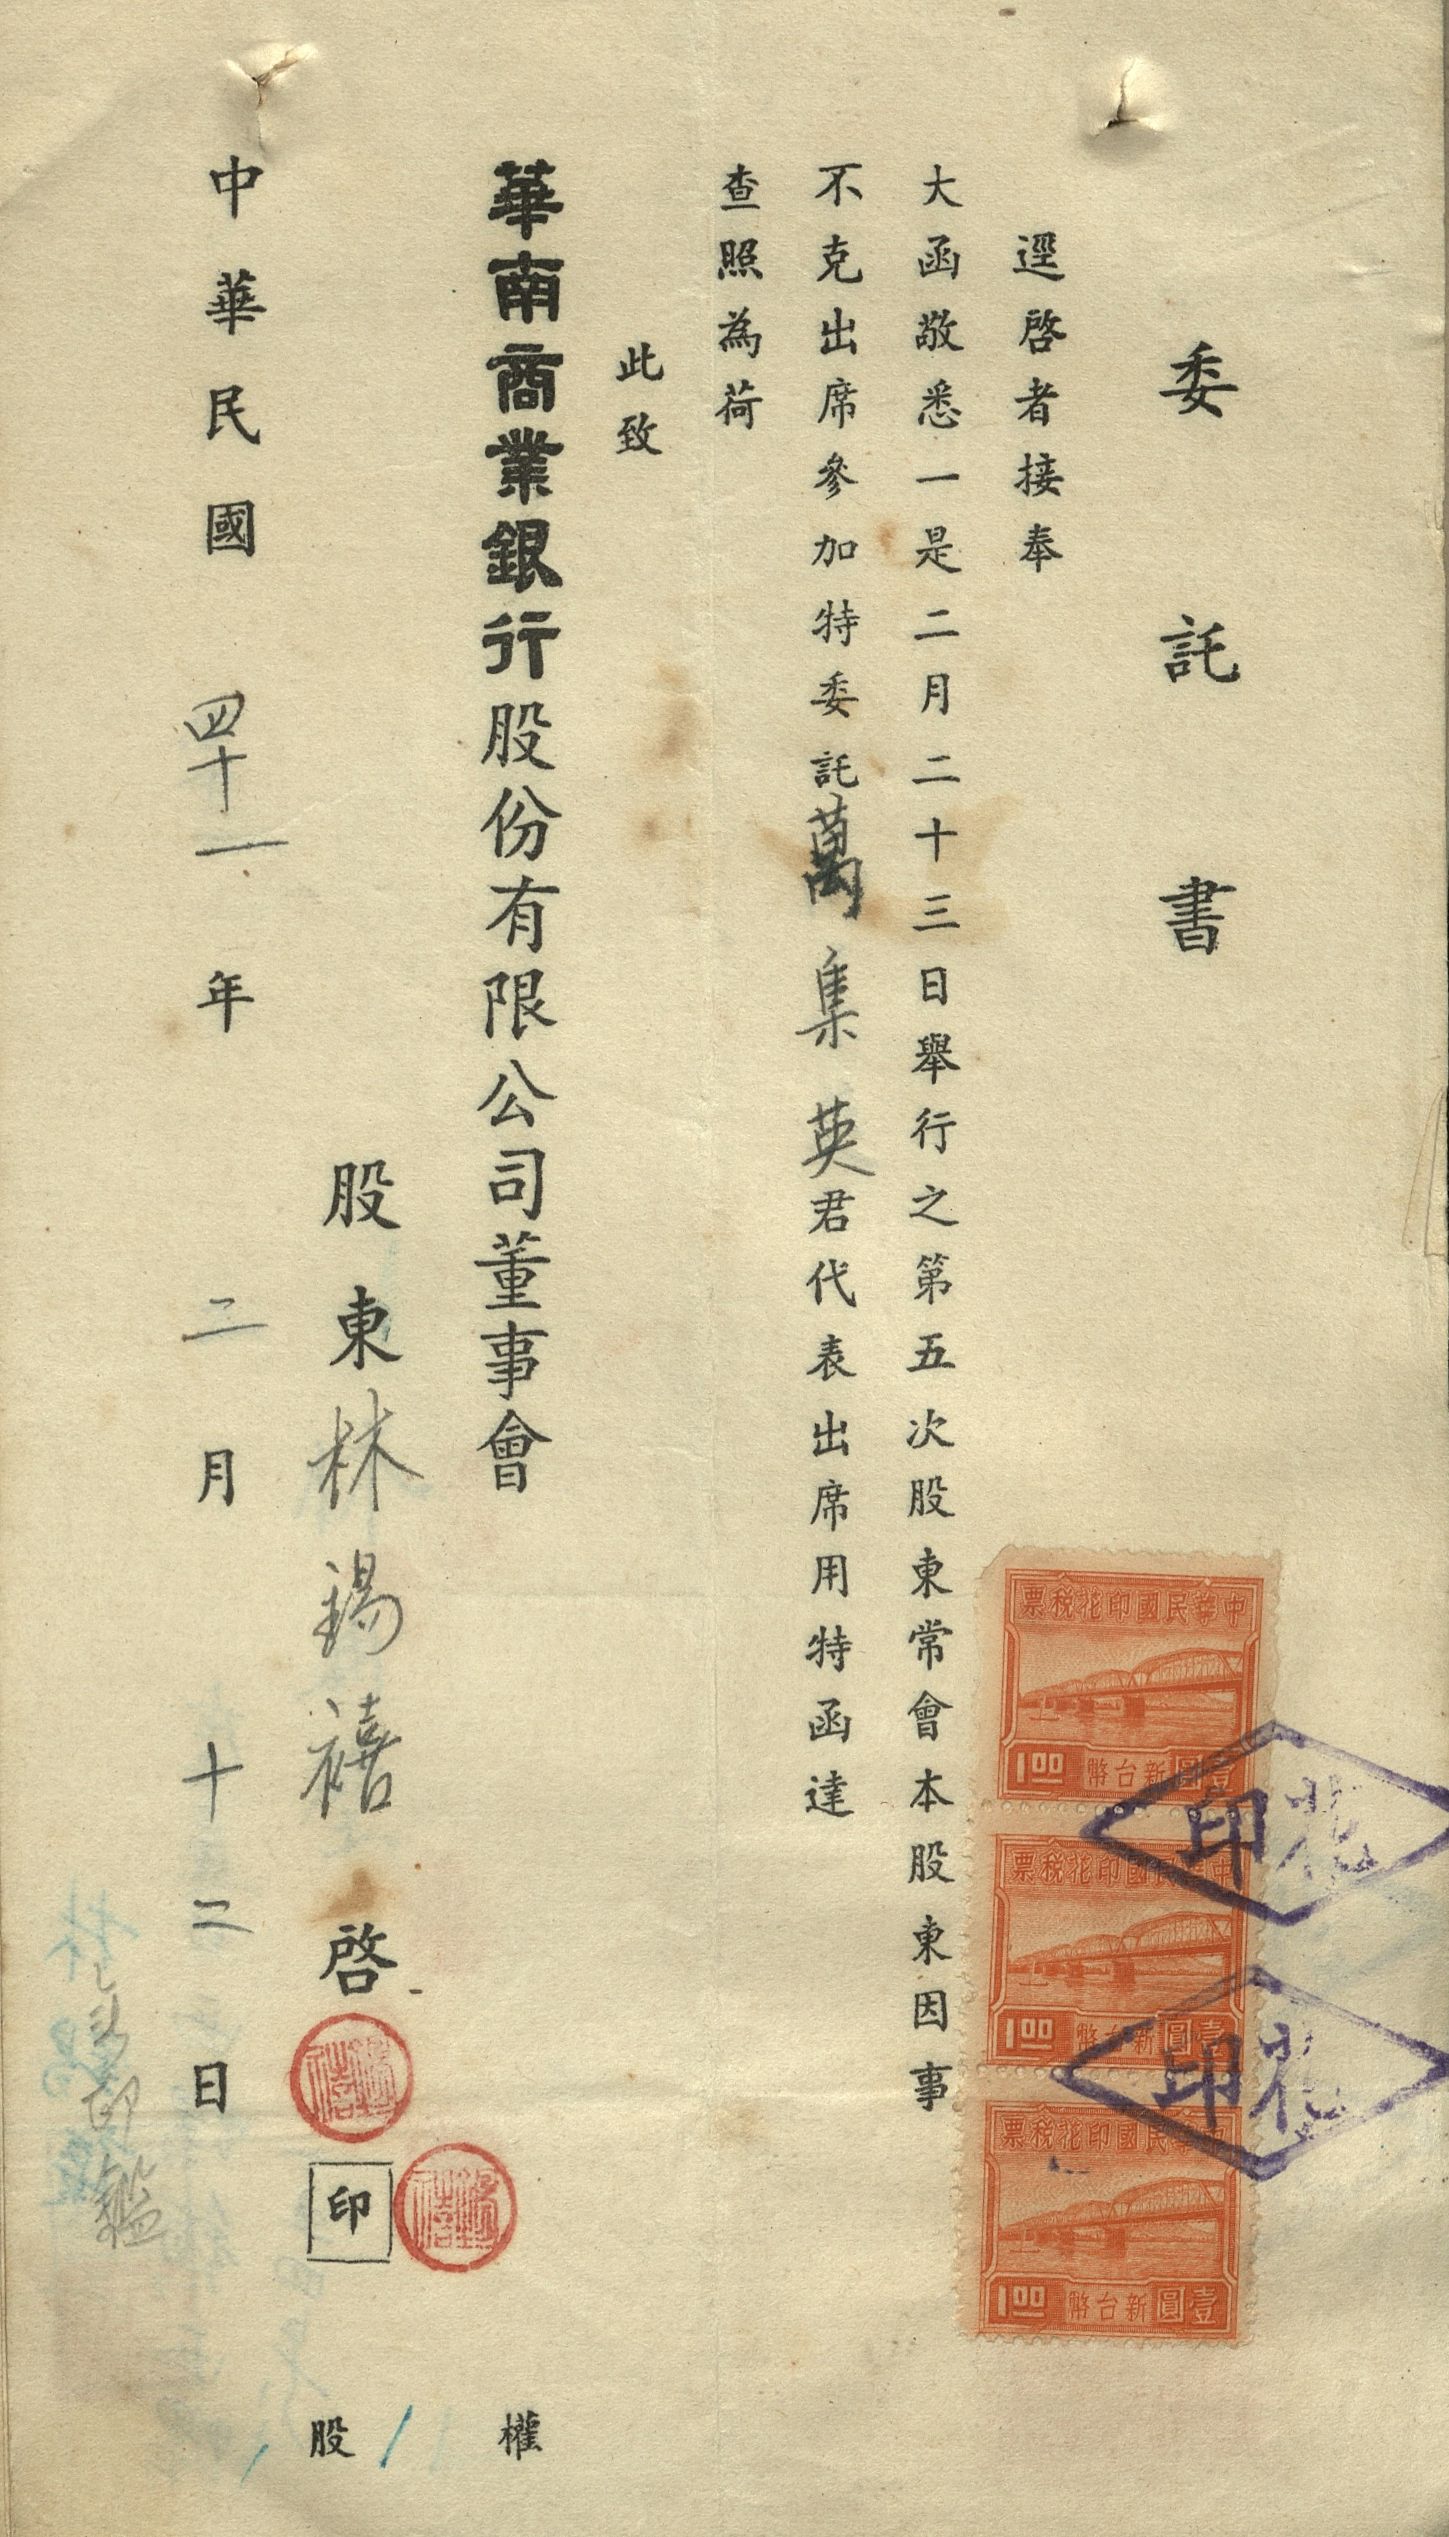 委託書
逕啓者接奉
大函敬悉一是二月二十三日舉行之第五次股東常會本股東因事
不克出席參加特委託萬集英君代表出席用特函達
查照為荷
此致
華南商業銀行股份有限公司董事會
股東林錫禧啓
印
權
股
中華民國四十一年二月十二日
印鑑
中華民國印花稅票
1.00
壹圓新台幣
中華民國印花稅票
1.00
壹圓新台幣
中華民國印花稅票
1.00
壹圓新台幣
印花
印花